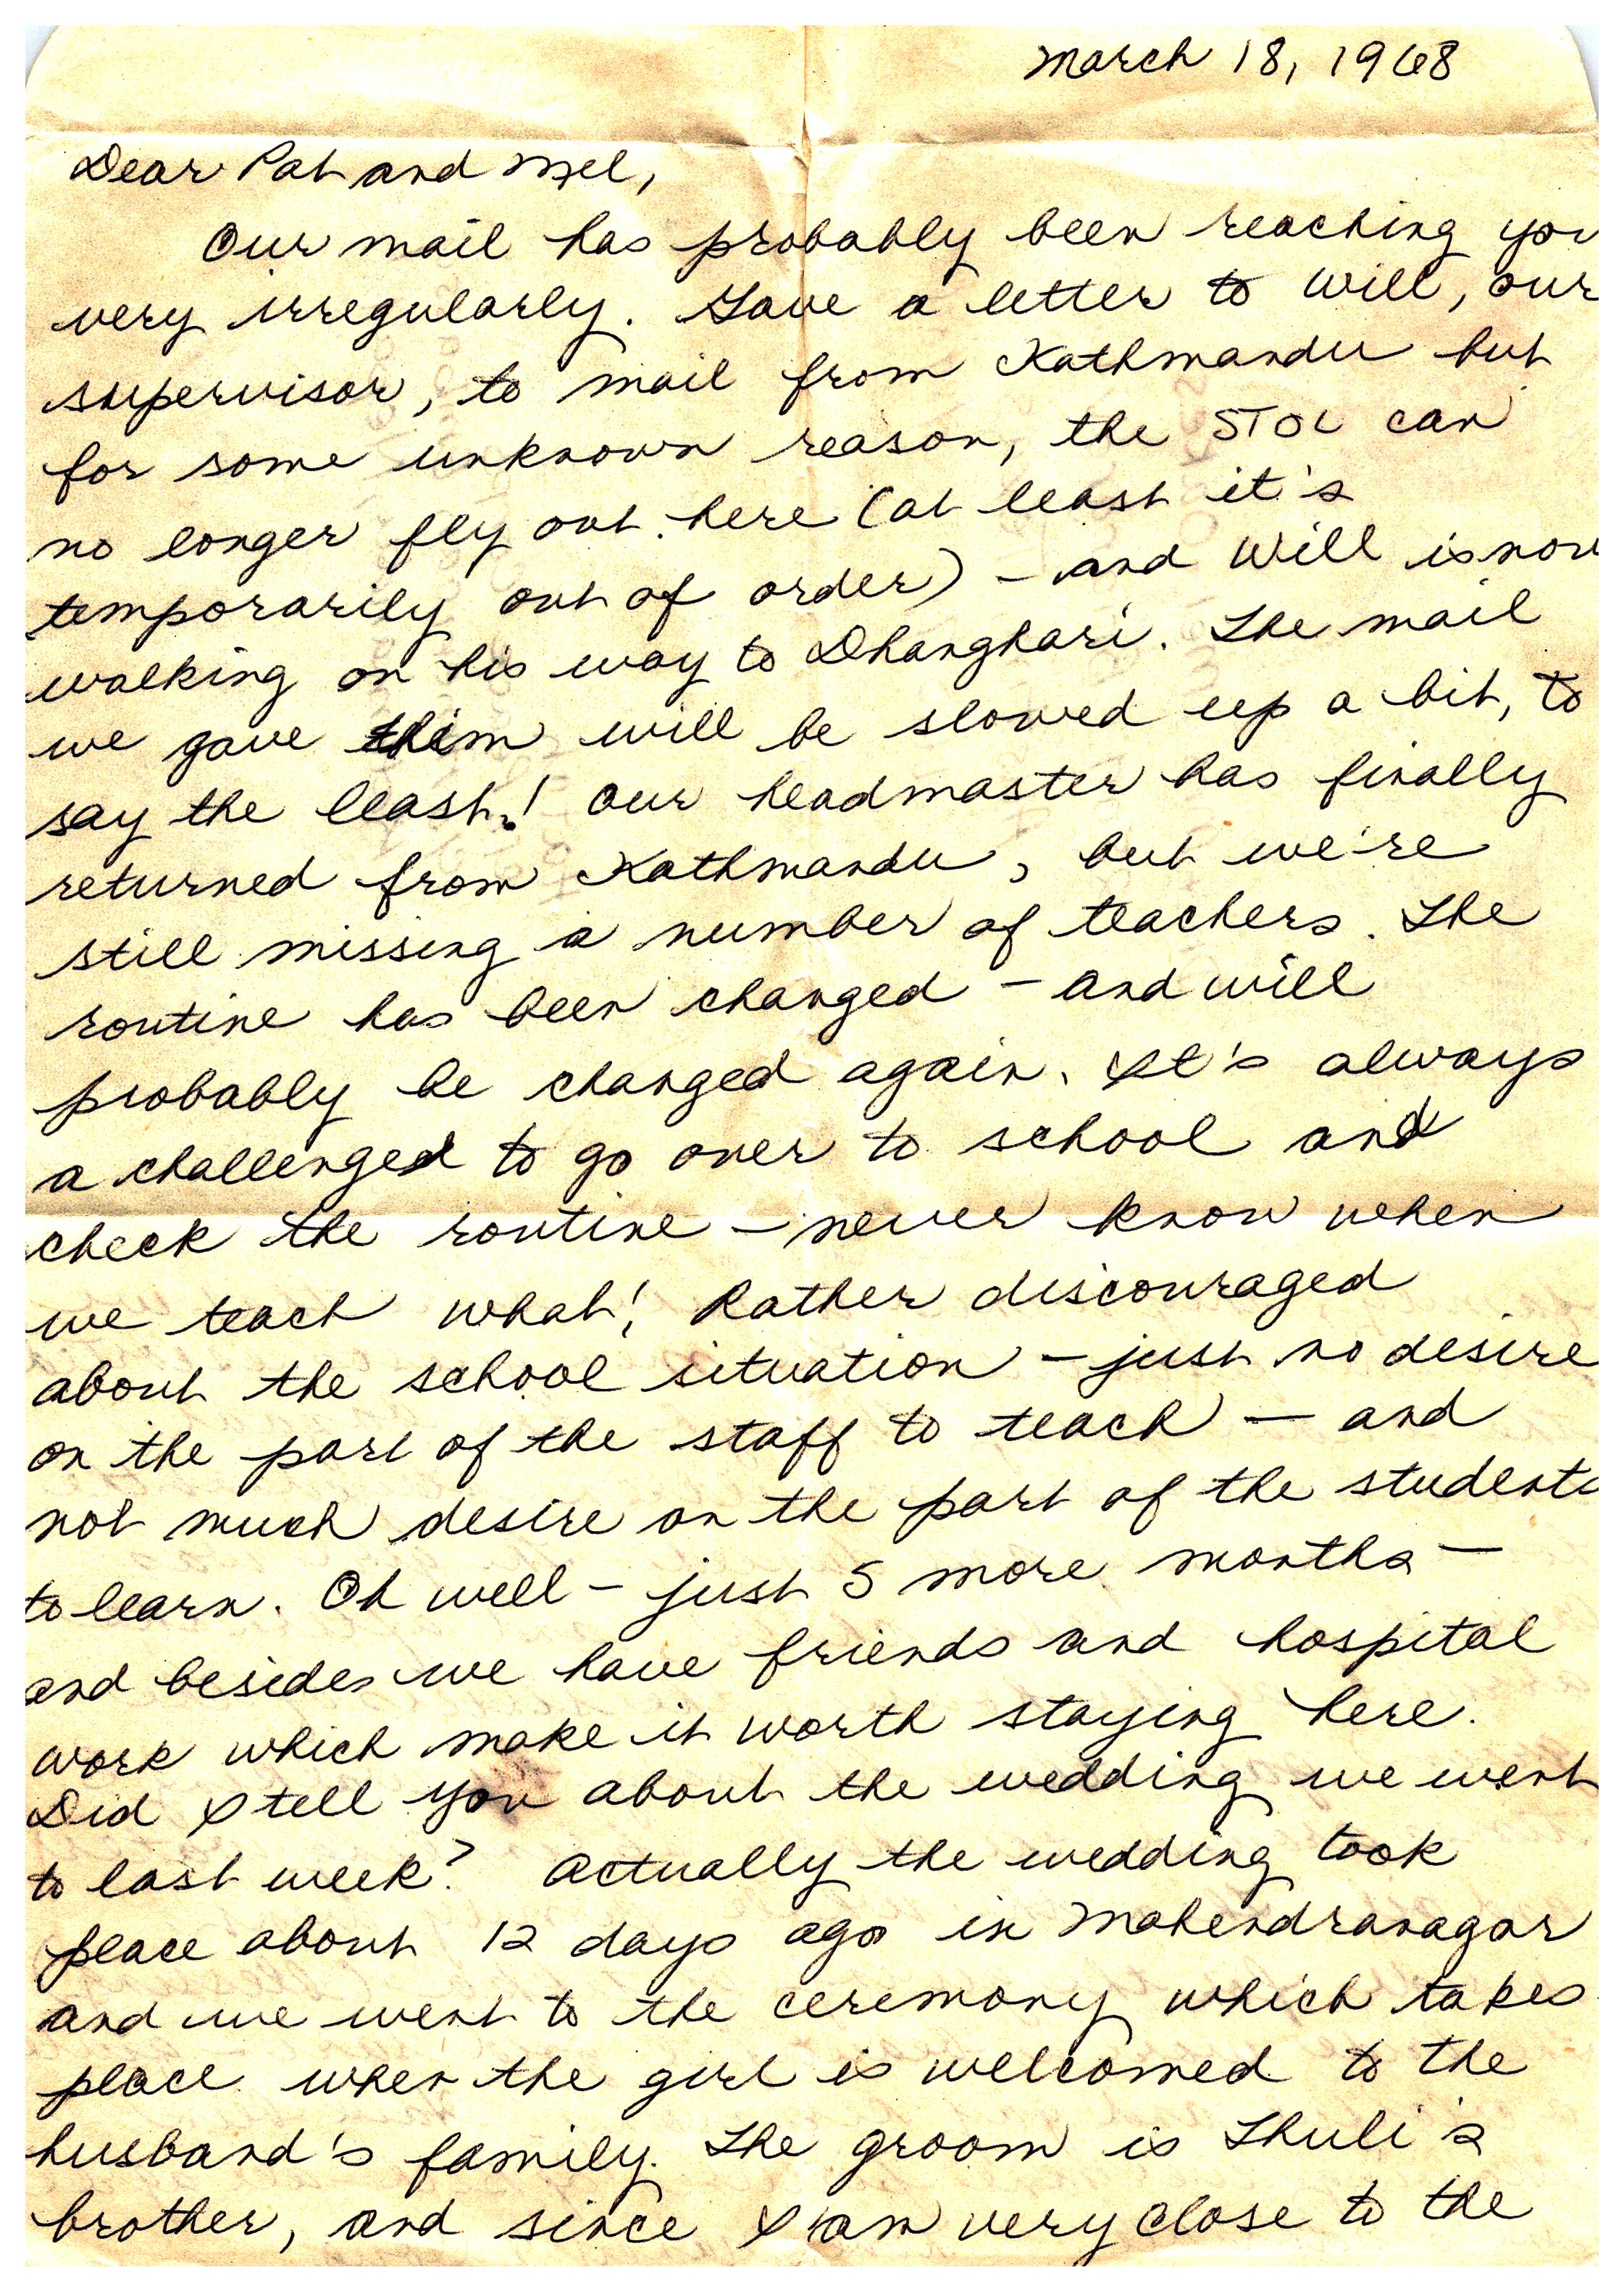 March 18, 1968
Dear Pat and Mel,
Our mail has probably been reaching you
very irregularly. Gave a letter to Will, our
supervisor, to mail from Kathmandu but
for some unknown reason, the STOL can
no longer fly out here (at least it's
temporarily out of order) - and Will is now
walking on his way to Dhanghari. The mail
we gave him will be slowed up a bit, to
say the least! Our headmaster has finally
returned from Kathmandu, but we're
still missing a number of teachers. The
routine has been changed - and will
probably be changed again. It's always
a challenged to go over to school and
check the routine - never know when
we teach what! Rather discouraged
about the school situation - just no desire
on the part of the staff to teach - and
not much desire on the part of the students
to learn. Oh well - just 5 more months -
and besides we have friends and hospital
work which make it worth staying here.
Did I tell you about the wedding we went
to last week? Actually the wedding took
place about 12 days ago in Mahendranagar
and we went to the ceremony which takes
place when the girl is welcomed to the
husband's family. The groom is Thuli's
brother, and since I am very close to the